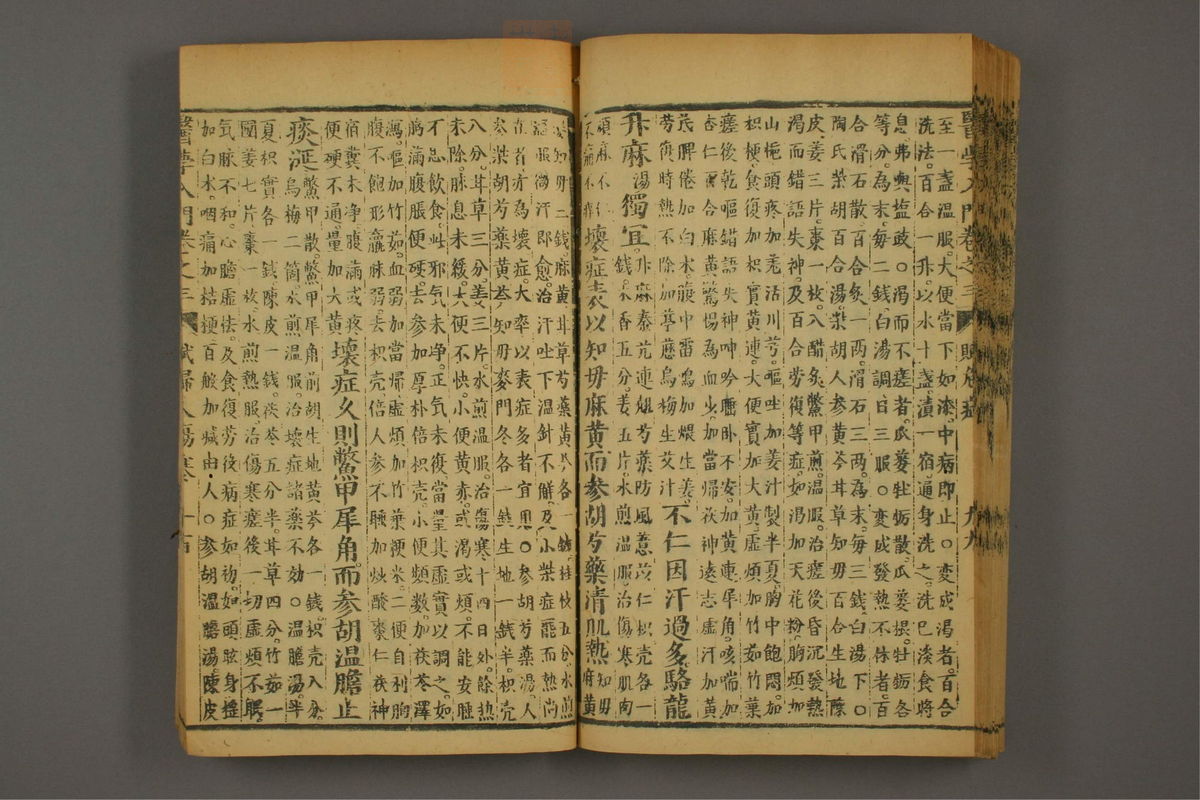 醫學入門卷之三 賦 傷寒 九九
至一盞溫服大便當下如漆中病即止○變成渴者百合
洗法百合一升以水十盞漬一宿通身洗之洗已淡食將
息弗與鹽豉○渴而不瘥者瓜蔞牡蠣散瓜蔞根牡蠣各
等分為末每二錢白湯調日三服○變成發熱不休者百
合滑石散百合炙一兩滑石三兩為末每三錢白湯下○
陶氏柴胡百合湯柴胡人參黃芩甘草知母百合生地陳
皮姜三片棗一枚入醋炙鱉甲煎溫服治瘥後昏沉發熱
渴而錯語失神及百合勞復等症如渴加天花粉胸煩加
山梔頭疼加羌活川芎嘔吐加姜汁製半夏胸中飽悶加
枳梗食復加枳實黃連大便實加大黃虛煩加竹茹竹葉
瘥後乾嘔錯語失神呻吟睡臥不安加黃連犀角咳喘加
杏仁百合麻黃驚惕為血少加當歸茯神遠志虛汗加黃
芪脾倦加白朮腹中雷鳴加煨生姜不仁因汗過多駱龍
勞復時熱不除加葶藶烏梅生艾汁
升麻湯獨宜升麻秦艽連翹芍藥防風薏苡仁枳殼各一
錢木香五分姜五片水煎溫服治傷寒肌肉
頑麻不仁
不痛不癢壞症表以知母麻黃而參胡芍藥清肌熱知母麻黃
湯知母二錢麻黃甘草芍藥黃芩各一錢桂枝五分水煎
溫服微汗即愈治汗吐下溫針不解及小柴症罷而熱尚
在者亦為壞症大率以表症多者宜用○參胡芍藥湯人
參柴胡芍藥黃芩知母麥門冬各一錢生地一錢半枳殼
八分甘草三分姜三片水煎溫服治傷寒十四日外餘熱
未除脈息未緩大便不快小便黃赤或渴或煩不能安睡
不思飲食此邪氣未淨正氣未復當量其虛實以調之如
胸滿腹脹便硬去參加厚朴倍枳殼小便頻數加茯苓澤
瀉嘔加竹茹血弱加當歸虛煩加竹葉粳米二便自利胸
腹不飽形羸脈弱去枳殼倍人參不睡加炒酸棗仁茯神
宿糞未淨腹滿或疼
便硬不通量加大黃壞症久則鱉甲犀角而參胡溫膽止
痰涎鱉甲散鱉甲犀角前胡生地黃芩各一錢枳殼八分
烏梅二箇水煎溫服治壞症諸藥不効○溫膽湯半
夏枳實各一錢陳皮一錢茯苓五分半甘草四分竹茹一
團姜七片棗一枚水煎熱服治傷寒瘥後一切虛煩不眠
氣脈不和心膽虛怯及食復勞後病症如初如頭眩身搖
加白朮咽痛加桔梗百般加減由人○參胡溫膽湯陳皮
醫學入門卷之三 賦 婦人傷寒